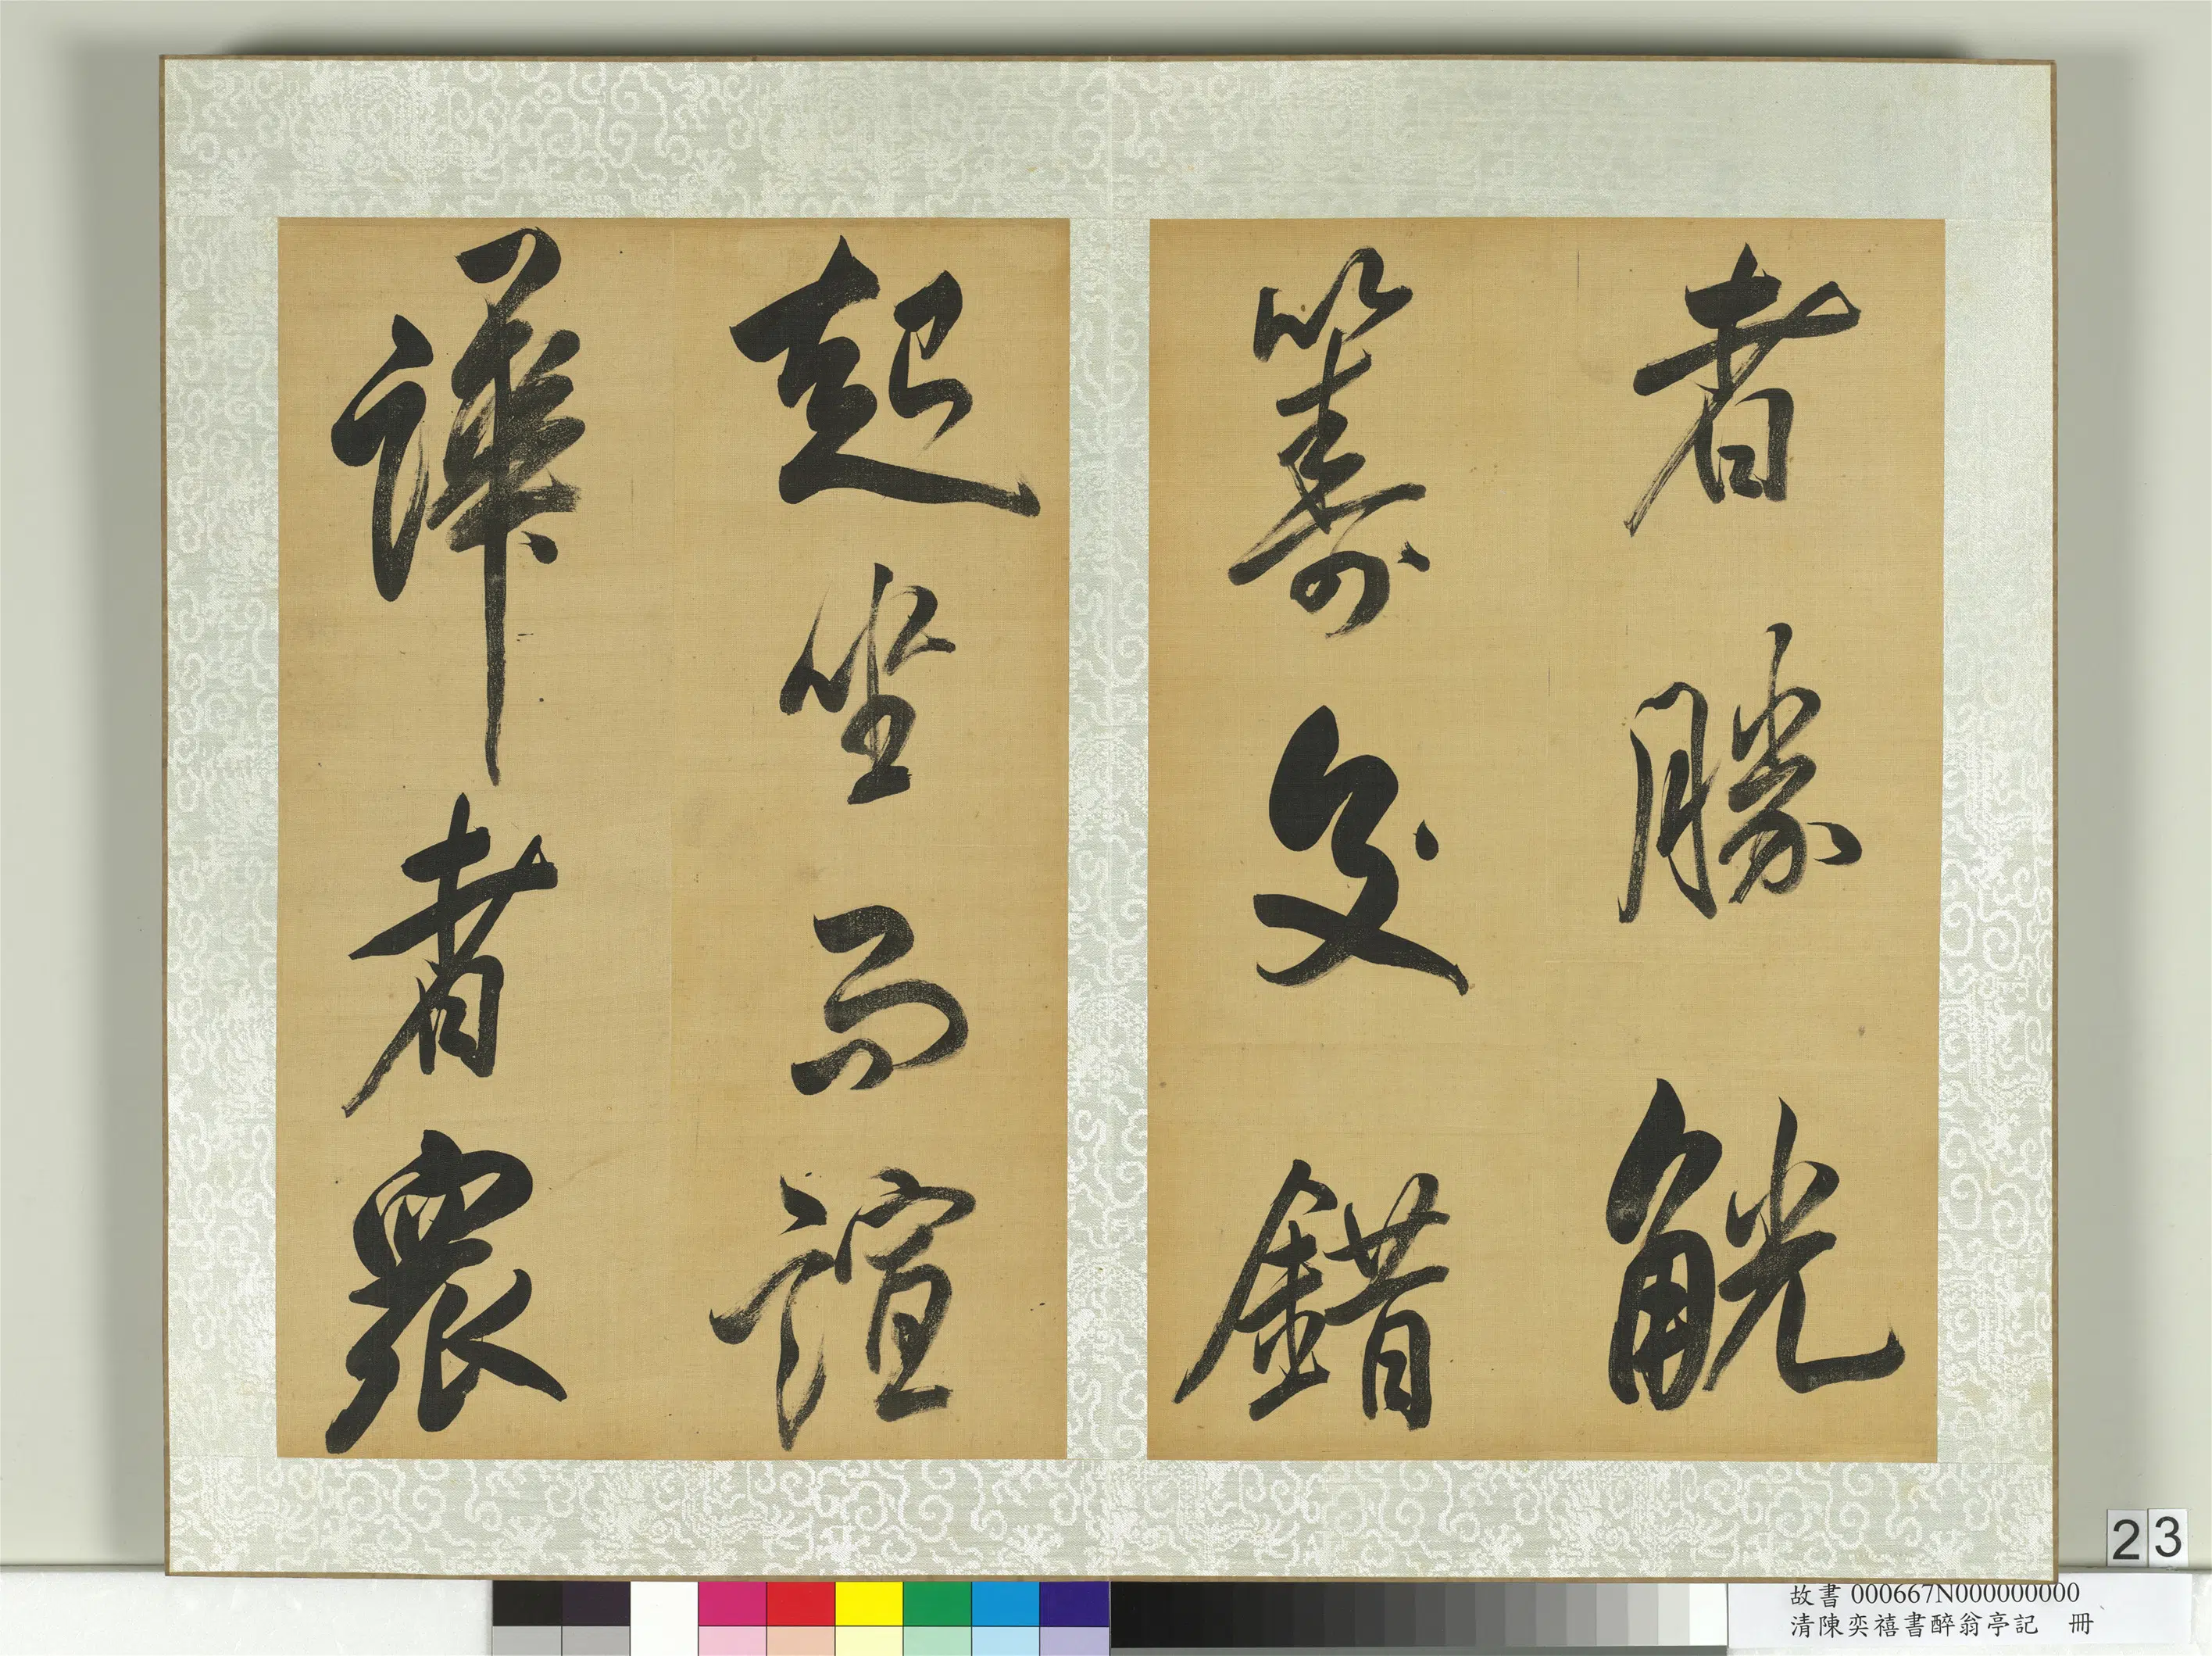 者勝觥
籌交錯
起坐而諠
譁者衆
23
故書 000667N000000000
清陳奕禧書醉翁亭記 冊